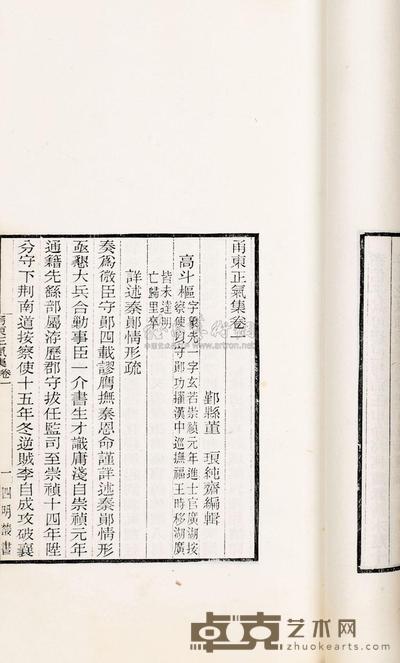 甬東正氣集卷一
鄞縣董　琅純齋編輯
高斗樞字象先一字玄若崇禎元年進士官廣湖按
察使以守鄖功擢漢中巡撫福王時移湖廣
皆未達明
亡歸里卒
詳述秦鄖情形疏
奏爲微臣守鄖四載謬膺撫秦恩命謹詳述秦鄖情形
亟懇大兵合勦事臣一介書生才識庸淺自崇禎元年
通籍先繇部屬游歷郡守拔任監司至崇禎十四年陞
分守下荆南道按察使十五年冬逆賊李自成攻破襄
甬東正氣集卷一　一　四明叢書
卓克艺术网
zhuokearts.com